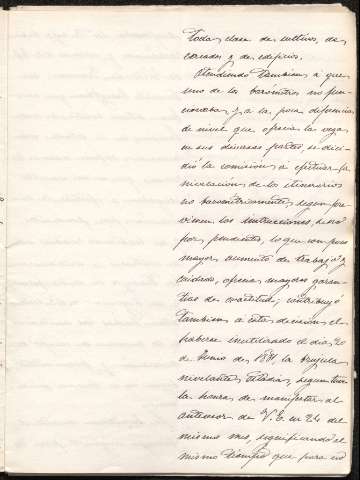 toda clase de cultivos, de
cercados y de edificios.
Atendiendo tambien a que
uno de los barómetros no fun-
cionaba, y a la poca diferencia
de nivel que ofrecia la vega
en sus diversas partes, se deci-
dió la comision a efectuar la
nivelación de los itinerarios
no barometricamente segun pre-
vienen las instrucciones, sino
por pendientes, lo que con poco
mayor aumento de trabajo y
cuidado, ofrecia mayores garan-
tias de exactitud; contribuyó
tambien a esta decision el
haberse inutilizado el dia 20
de Junio de 1881 la brujula
nivelante, segun tuve
la honra de manifestar al
antecesor de V.E. en 24 del
mismo mes, significando al
mismo tiempo que para no